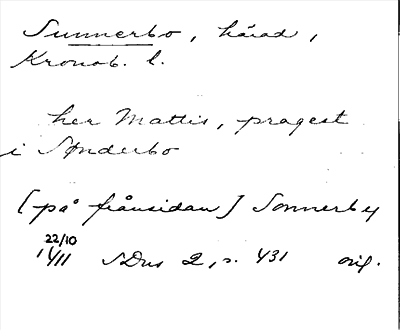 Sunnerbo, härad,
Kronob. l.
her Mattis, pragest
i Sønderbo
[på frånsidan] Sonnerby
22/10
1411 SDns 2, s. 431 orig.